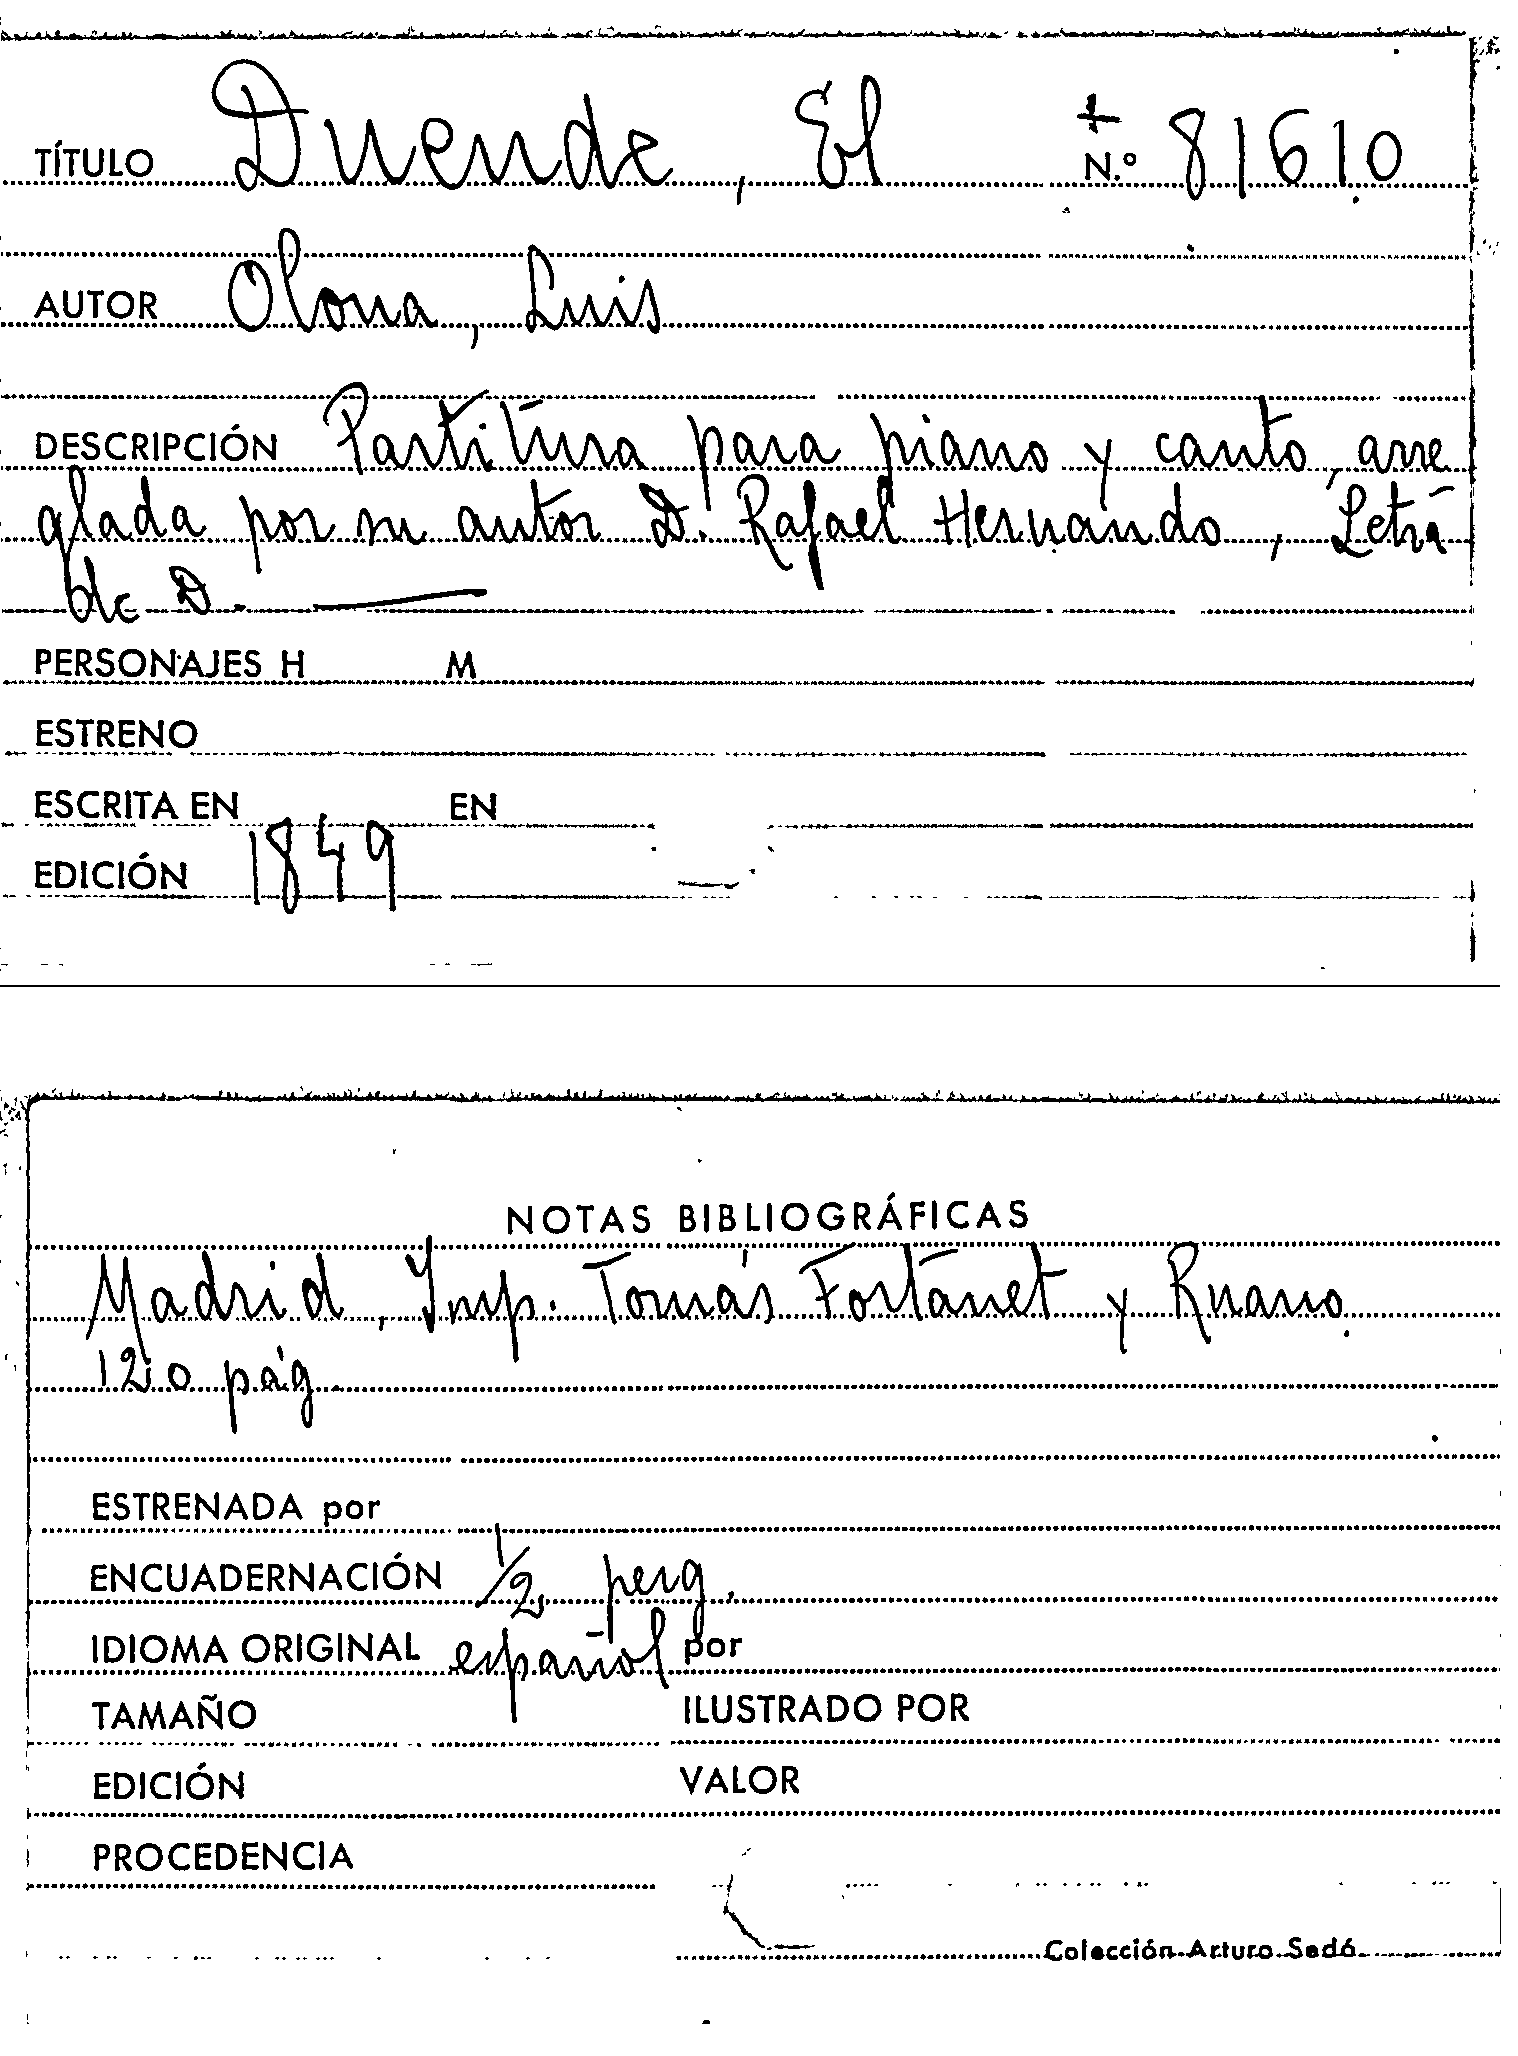 TÍTULO Duende, El + N.º 81610
AUTOR Olona, Luis
DESCRIPCIÓN Partitura para piano y canto, arre
glada por su autor D. Rafael Hernando, Letra
de D. ———
PERSONAJES H M
ESTRENO
ESCRITA EN EN
EDICIÓN 1849
NOTAS BIBLIOGRÁFICAS
Madrid, Imp. Tomás Fortanet y Ruano.
120 pág.
ESTRENADA por
ENCUADERNACIÓN 1/2 perg.
IDIOMA ORIGINAL español por
TAMAÑO ILUSTRADO POR
EDICIÓN VALOR
PROCEDENCIA
Colección Arturo Sedó